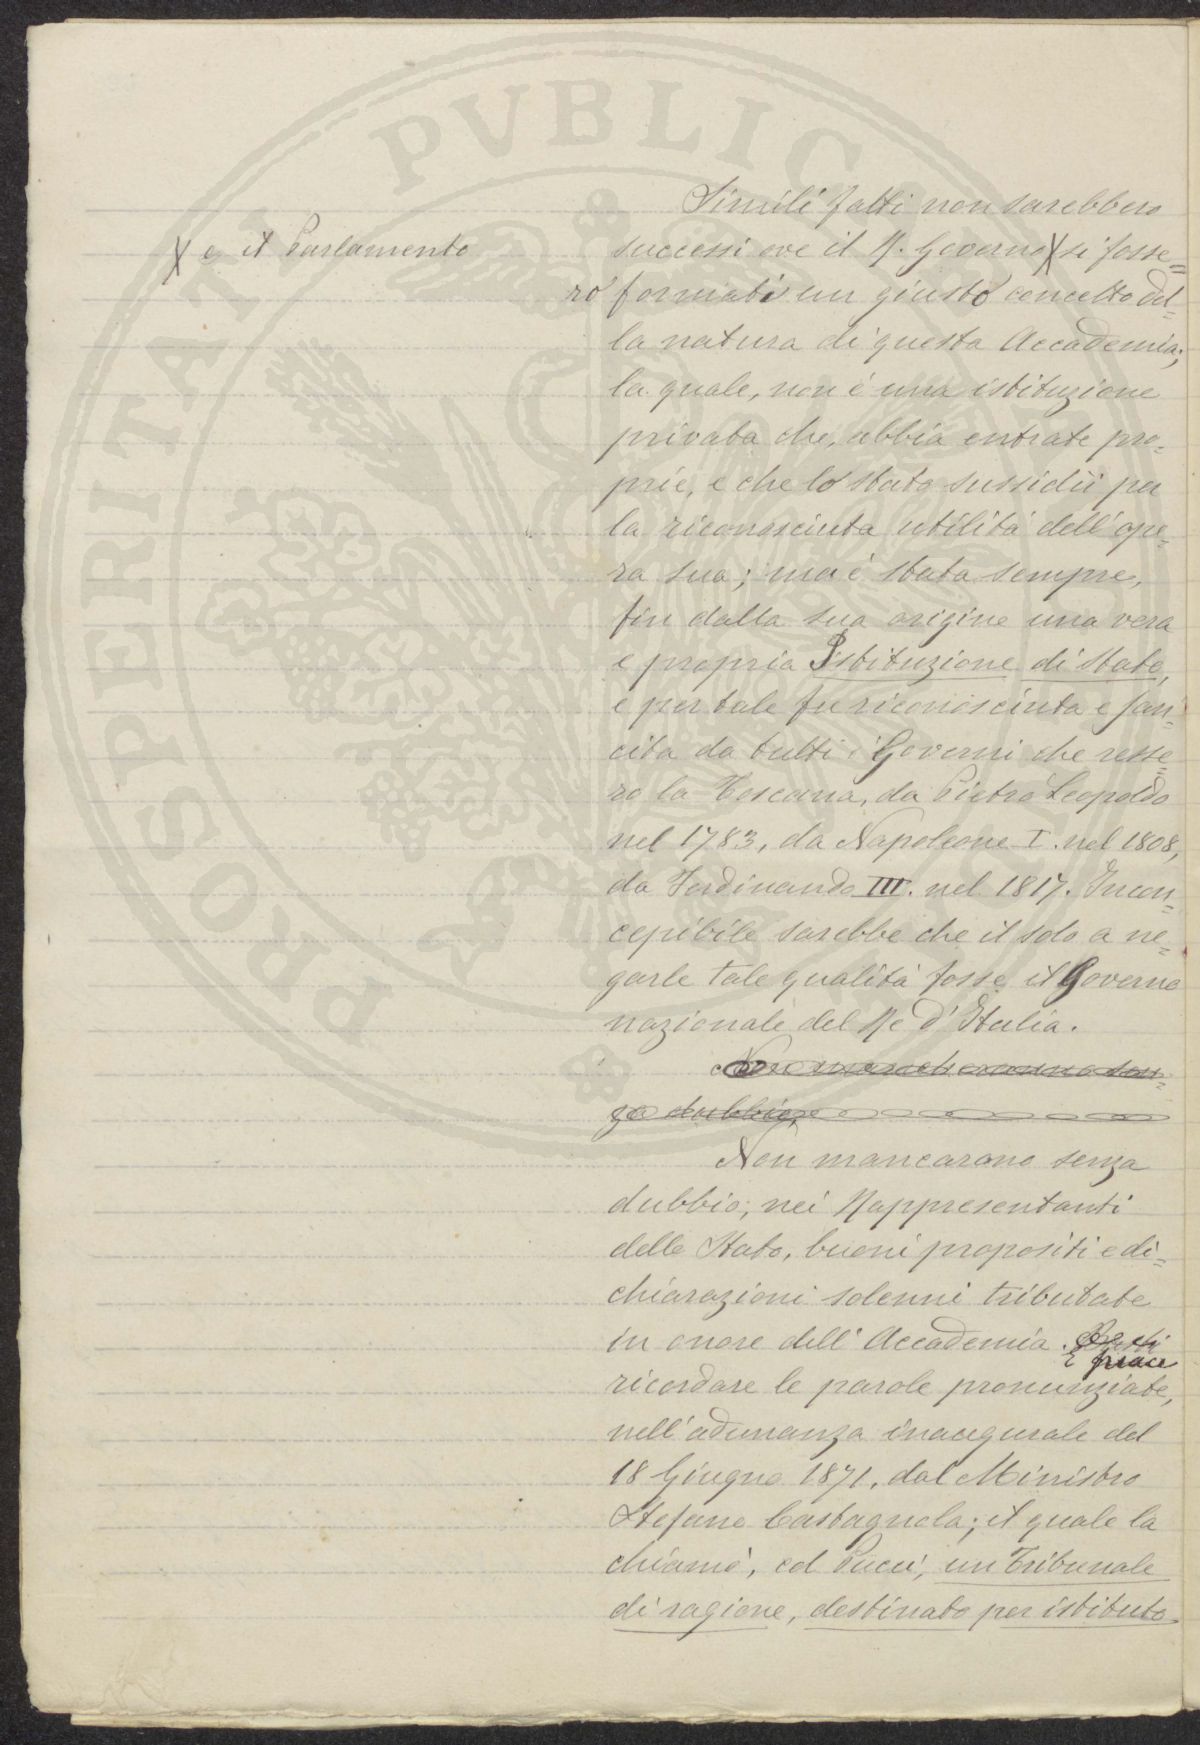 PROSPERITATI PVBLICAE
Simili fatti non sarebbero
X e il Parlamento
successi ove il R. Governo X si fosse=
ro formati un giusto concetto del=
la natura di questa Accademia;
la quale, non è una istituzione
privata che, abbia entrate pro=
prie, e che lo Stato sussidii per
la riconosciuta utilità dell'ope=
ra sua; ma è stata sempre,
fin dalla sua origine una vera
e propria Istituzione di Stato,
e per tale fu riconosciuta e san=
cita da tutti i Governi che resse=
ro la Toscana, da Pietro Leopoldo
nel 1783, da Napoleone I. nel 1808,
da Ferdinando III. nel 1817. Incon=
cepibile sarebbe che il solo a ne=
garle tale qualità fosse il Governo
nazionale del Re d'Italia.
Non mancheranno sen=
za dubbio,
Non mancarono senza
dubbio, nei Rappresentanti
dello Stato, buoni propositi e di=
chiarazioni solenni tributate
in onore dell'Accademia.
E piace
ricordare le parole pronunziate,
nell'adunanza inaugurale del
18 Giugno 1871, dal Ministro
Stefano Castagnola; il quale la
chiamò, col Pucci, un Tribunale
di ragione, destinato per istituto